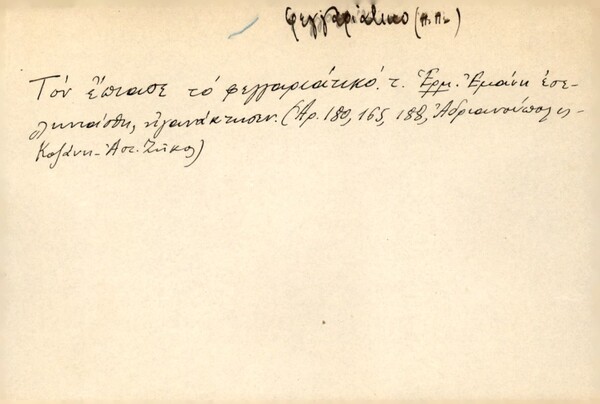 φεγγαριάτικο (τὸ)
Τὸν ἔπιασε τὸ φεγγαριάτικό. τ. Ἑρμ. Ἐμάνη ἐσε-
ληνιάσθη, ἠγανάκτησεν. (Ἀρ. 180, 165, 188, Ἀδριανούπολις-
Κοζάνη - Ἀστ.